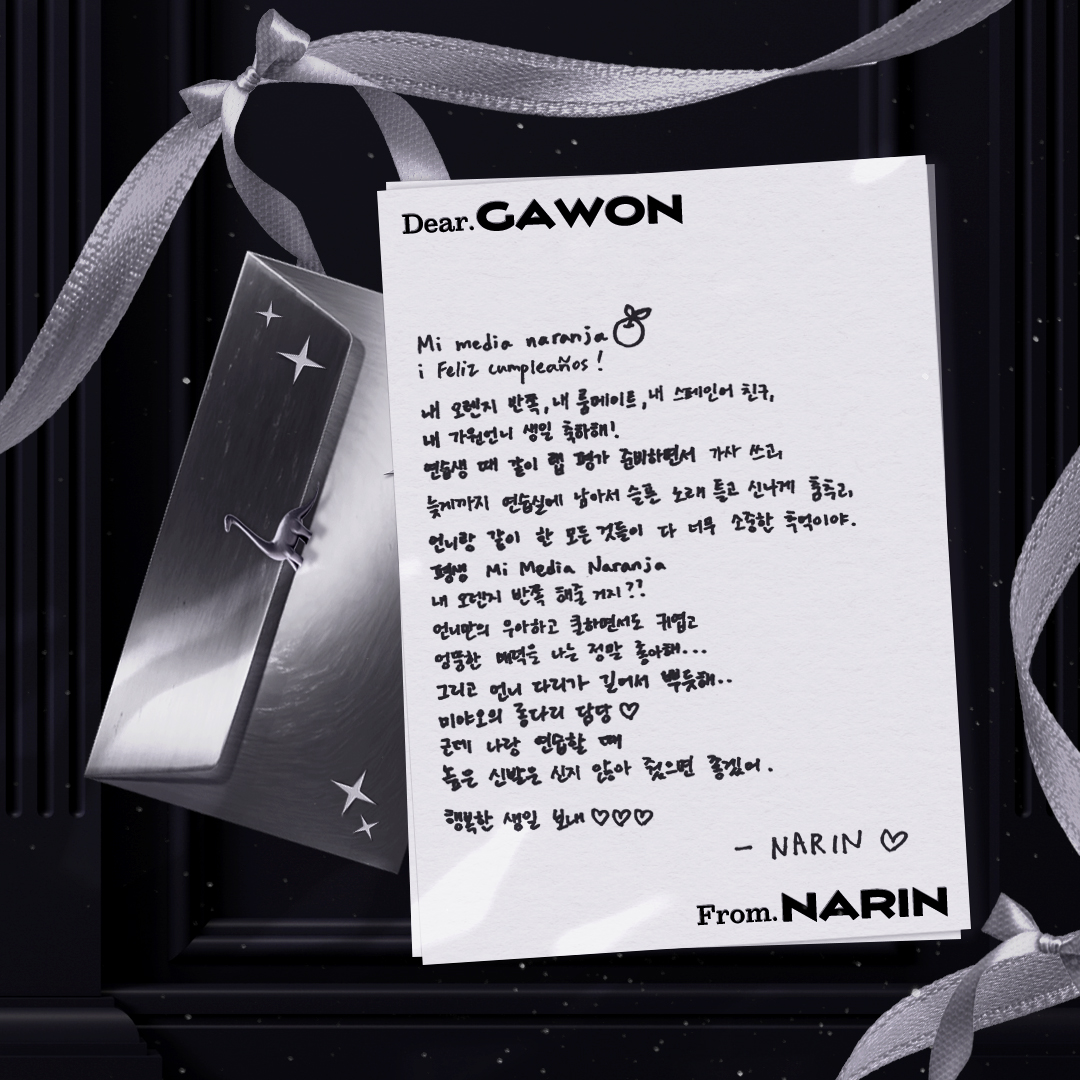 Dear. GAWON
Mi media naranja
¡ Feliz cumpleaños !
내 오렌지 반쪽, 내 룸메이트, 내 스페인어 친구,
내 가원언니 생일 축하해!
연습생 때 같이 랩 평가 준비하면서 가사 쓰고,
늦게까지 연습실에 남아서 슬픈 노래 틀고 신나게 춤추고,
언니랑 같이 한 모든 것들이 다 너무 소중한 추억이야.
평생 Mi Media Naranja
내 오렌지 반쪽 해줄거지??
언니만의 우아하고 쿨하면서도 귀엽고
엉뚱한 매력을 나는 정말 좋아해...
그리고 언니 다리가 길어서 뿌듯해..
미야오의 롱다리 담당 ♡
근데 나랑 연습할 때
높은 신발은 신지 않아 줬으면 좋겠어.
행복한 생일 보내 ♡♡♡
– NARIN ♡
From. NARIN